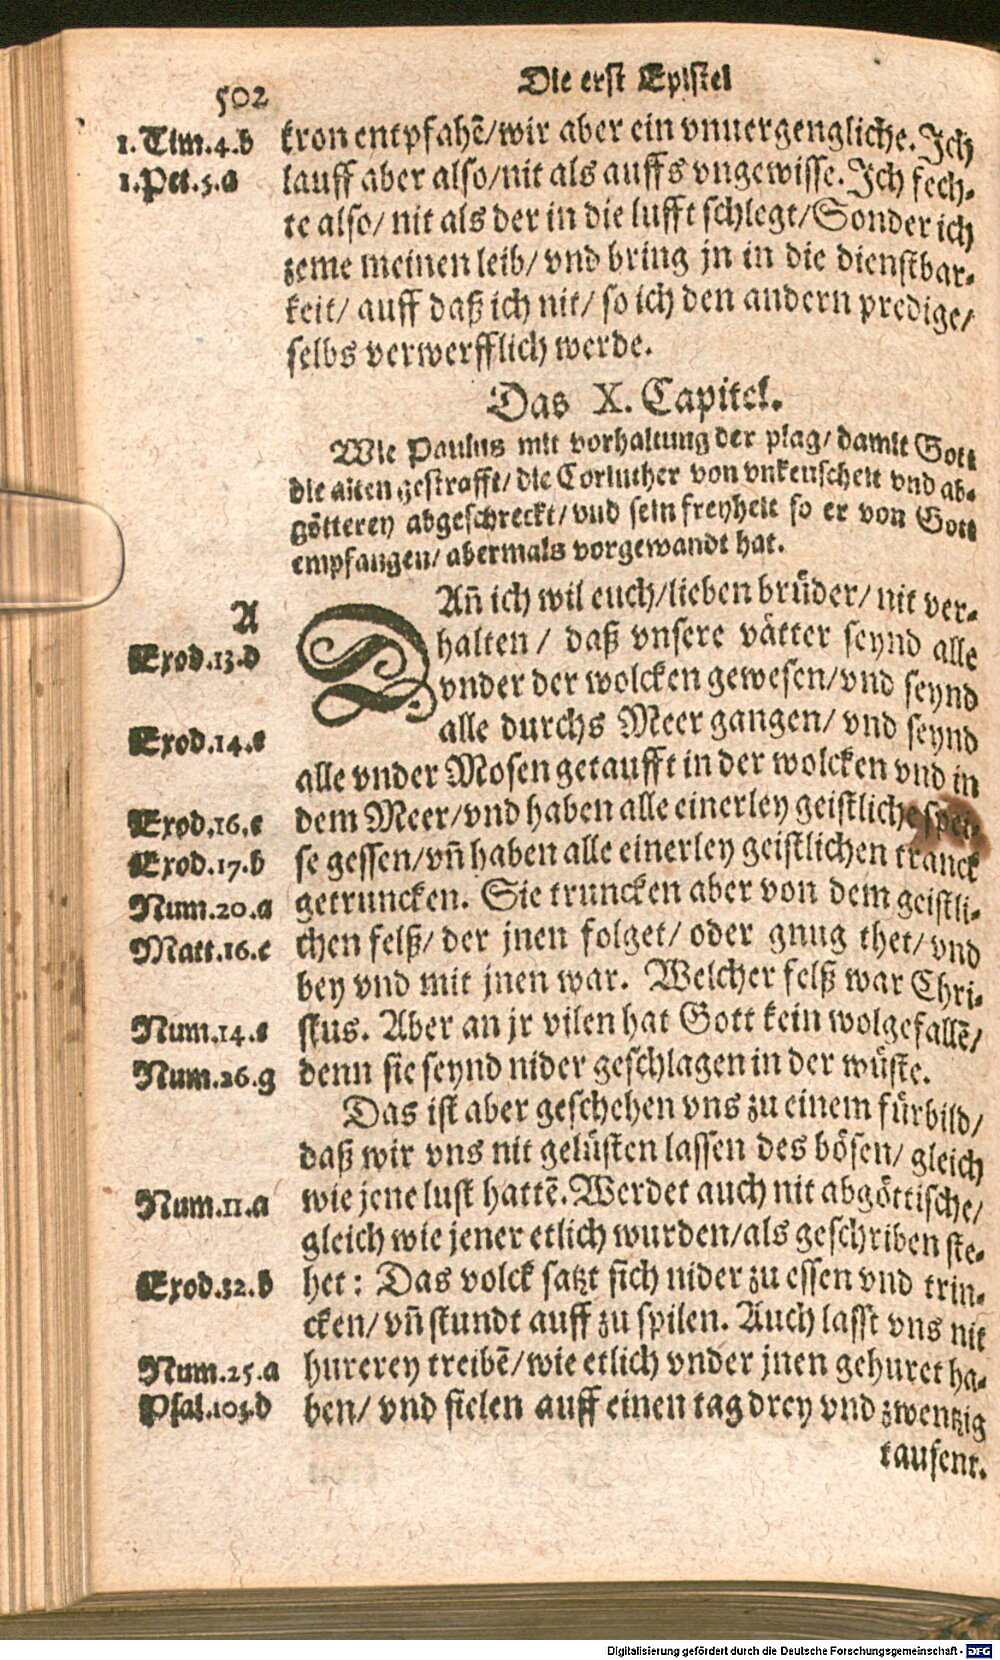 502
Die erst Epistel
1. Tim. 4. b
kron entpfahē/wir aber ein vnuergengliche. Ich
1. Pet. 5. a
lauff aber also/nit als auffs vngewisse. Ich fech-
te also/ nit als der in die lufft schlegt/Sonder ich
zeme meinen leib/ vnd bring jn in die dienstbar-
keit/ auff daß ich nit/ so ich den andern predige/
selbs verwerfflich werde.
Das X. Capitel.
Wie Paulus mit vorhaltung der plag/ damit Gott
die alten gestrafft/ die Corinther von vnkeuscheit vnd ab-
götterey abgeschreckt/ vnd sein freyheit so er von Gott
empfangen/ abermals vorgewandt hat.
A
DAn̄ ich wil euch/lieben brüder/ nit ver-
halten / daß vnsere vätter seynd alle
Exod. 13. d
vnder der wolcken gewesen/vnd seynd
alle durchs Meer gangen/ vnd seynd
Exod. 14. e
alle vnder Mosen getaufft in der wolcken vnd in
Exod. 16. c
dem Meer/vnd haben alle einerley geistliche spei-
Exod. 17. b
se gessen/vn̄ haben alle einerley geistlichen tranck
Num. 20. a
getruncken. Sie truncken aber von dem geistli-
Matt. 16. c
chen felß/ der jnen folget/ oder gnug thet/ vnd
bey vnd mit jnen war. Welcher felß war Chri-
Num. 14. e
stus. Aber an jr vilen hat Gott kein wolgefallē/
Num. 26. g
denn sie seynd nider geschlagen in der wüste.
Das ist aber geschehen vns zu einem fürbild/
daß wir vns nit gelüsten lassen des bösen/ gleich
Num. 11. a
wie jene lust hattē. Werdet auch nit abgöttische/
gleich wie jener etlich wurden/als geschriben ste-
Exod. 32. b
het: Das volck satzt sich nider zu essen vnd trin-
cken/ vn̄ stundt auff zu spilen. Auch lasst vns nit
Num. 25. a
hurerey treibē/wie etlich vnder jnen gehuret ha-
Psal. 105. d
ben/ vnd fielen auff einen tag drey vnd zwentzig
tausent.
Digitalisierung gefördert durch die Deutsche Forschungsgemeinschaft - DFG